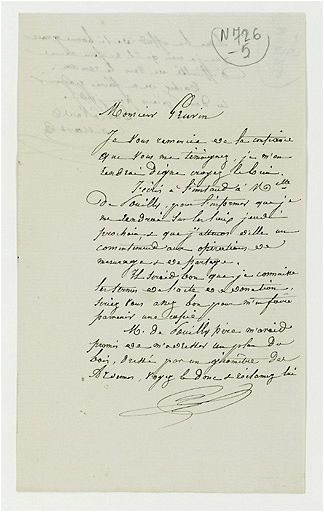 N 726
-5
Monsieur
Je vous remercie de la confiance
que vous me témoignez, je m'en
rendrai digne croyez le bien.
J'écris à l'instant à
de Pouilly, pour l'informer que je
me rendrai sur les lieux jeudi
prochain & que j'attends d'elle un
commencement aux opérations de
mesurage & de partage.
Il serait bon que je connaisse
les termes de l'acte de donation,
seriez vous assez bon pour m'en faire
parvenir une copie.
M. de Pouilly père m'avait
promis de m'adresser un plan du
bois, dressé par un géomètre des
Ardennes, voyez le donc & réclamez lui